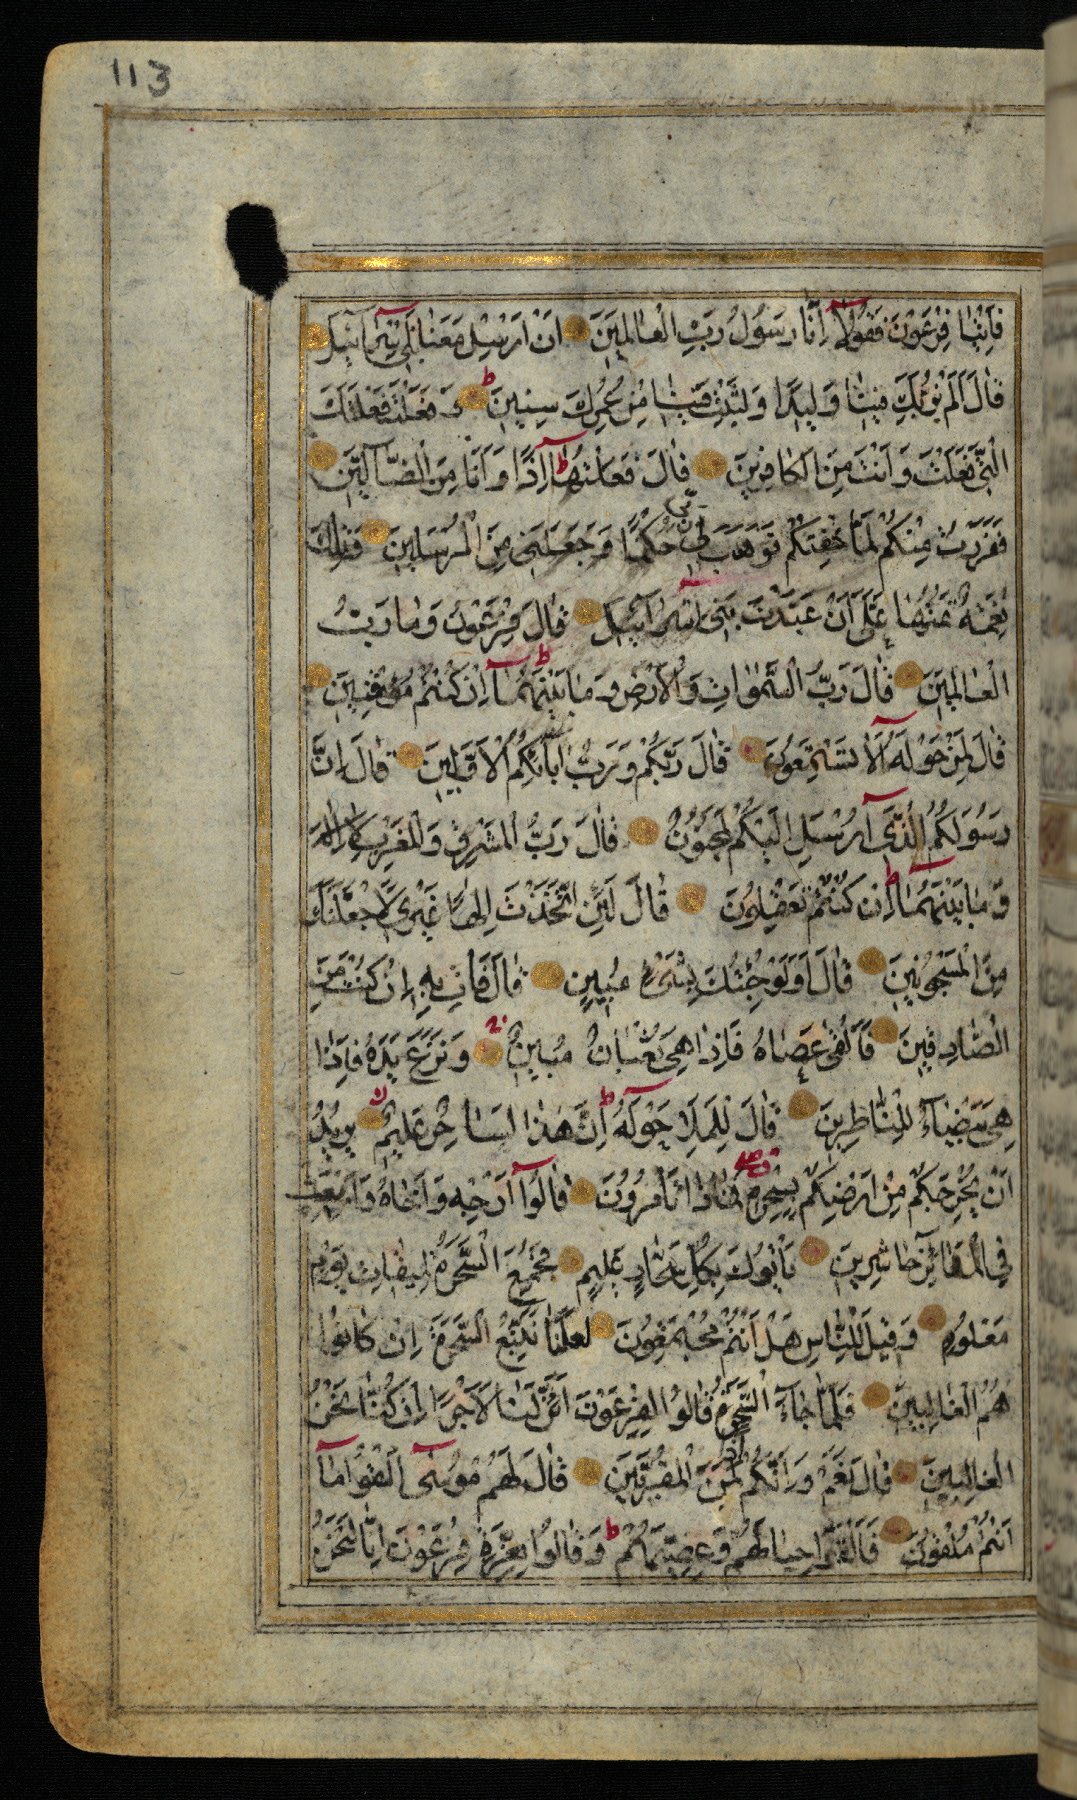 113
فَأْتِيَا فِرْعَوْنَ فَقُولَآ اِنَّا رَسُولُ رَبِّ الْعَالَمِينَ اَنْ اَرْسِلْ مَعَنَا بَنِي اِسْرَآئِيلَ
قَالَ اَلَمْ نُرَبِّكَ فِينَا وَلِيدًا وَلَبِثْتَ فِينَا مِنْ عُمُرِكَ سِنِينَ ط وَفَعَلْتَ فَعْلَتَكَ
الَّتِي فَعَلْتَ وَاَنْتَ مِنَ الْكَافِرِينَ قَالَ فَعَلْتُهَا ط اِذًا وَاَنَا مِنَ الضَّآلِّينَ
فَفَرَرْتُ مِنْكُمْ لَمَّا خِفْتُكُمْ فَوَهَبَ لِي رَبِّي حُكْمًا وَجَعَلَنِي مِنَ الْمُرْسَلِينَ وَتِلْكَ
نِعْمَةٌ تَمُنُّهَا عَلَيَّ اَنْ عَبَّدْتَ بَنِي اِسْرَآئِيلَ قَالَ فِرْعَوْنُ وَمَا رَبُّ
الْعَالَمِينَ قَالَ رَبُّ السَّمٰوَاتِ وَالْاَرْضِ وَمَا بَيْنَهُمَآ ط اِنْ كُنْتُمْ مُوقِنِينَ
قَالَ لِمَنْ حَوْلَهُٓ اَلَا تَسْتَمِعُونَ قَالَ رَبُّكُمْ وَرَبُّ اٰبَآئِكُمُ الْاَوَّلِينَ قَالَ اِنَّ
رَسُولَكُمُ الَّذِيٓ اُرْسِلَ اِلَيْكُمْ لَمَجْنُونٌ قَالَ رَبُّ الْمَشْرِقِ وَالْمَغْرِبِ
وَمَا بَيْنَهُمَآ ط اِنْ كُنْتُمْ تَعْقِلُونَ قَالَ لَئِنِ اتَّخَذْتَ اِلٰهًا غَيْرِي لَاَجْعَلَنَّكَ
مِنَ الْمَسْجُونِينَ قَالَ اَوَلَوْ جِئْتُكَ بِشَيْءٍ مُبِينٍ قَالَ فَأْتِ بِهِ اِنْ كُنْتَ مِنَ
الصَّادِقِينَ فَاَلْقٰى عَصَاهُ فَاِذَا هِيَ ثُعْبَانٌ مُبِينٌ وَنَزَعَ يَدَهُ فَاِذَا
هِيَ بَيْضَآءُ لِلنَّاظِرِينَ قَالَ لِلْمَلَاِ حَوْلَهُٓ اِنَّ هٰذَا لَسَاحِرٌ عَلِيمٌ يُرِيدُ
اَنْ يُخْرِجَكُمْ مِنْ اَرْضِكُمْ بِسِحْرِهِ فَمَاذَا تَأْمُرُونَ قَالُوآ اَرْجِهْ وَاَخَاهُ وَابْعَثْ
فِي الْمَدَآئِنِ حَاشِرِينَ يَأْتُوكَ بِكُلِّ سَحَّارٍ عَلِيمٍ فَجُمِعَ السَّحَرَةُ لِمِيقَاتِ يَوْمٍ
مَعْلُومٍ وَقِيلَ لِلنَّاسِ هَلْ اَنْتُمْ مُجْتَمِعُونَ لَعَلَّنَا نَتَّبِعُ السَّحَرَةَ اِنْ كَانُوا
هُمُ الْغَالِبِينَ فَلَمَّا جَآءَ السَّحَرَةُ قَالُوا لِفِرْعَوْنَ اَئِنَّ لَنَا لَاَجْرًا اِنْ كُنَّا نَحْنُ
الْغَالِبِينَ قَالَ نَعَمْ وَاِنَّكُمْ اِذًا لَمِنَ الْمُقَرَّبِينَ قَالَ لَهُمْ مُوسٰىٓ اَلْقُوا مَآ
اَنْتُمْ مُلْقُونَ فَاَلْقَوْا حِبَالَهُمْ وَعِصِيَّهُمْ ط وَقَالُوا بِعِزَّةِ فِرْعَوْنَ اِنَّا لَنَحْنُ